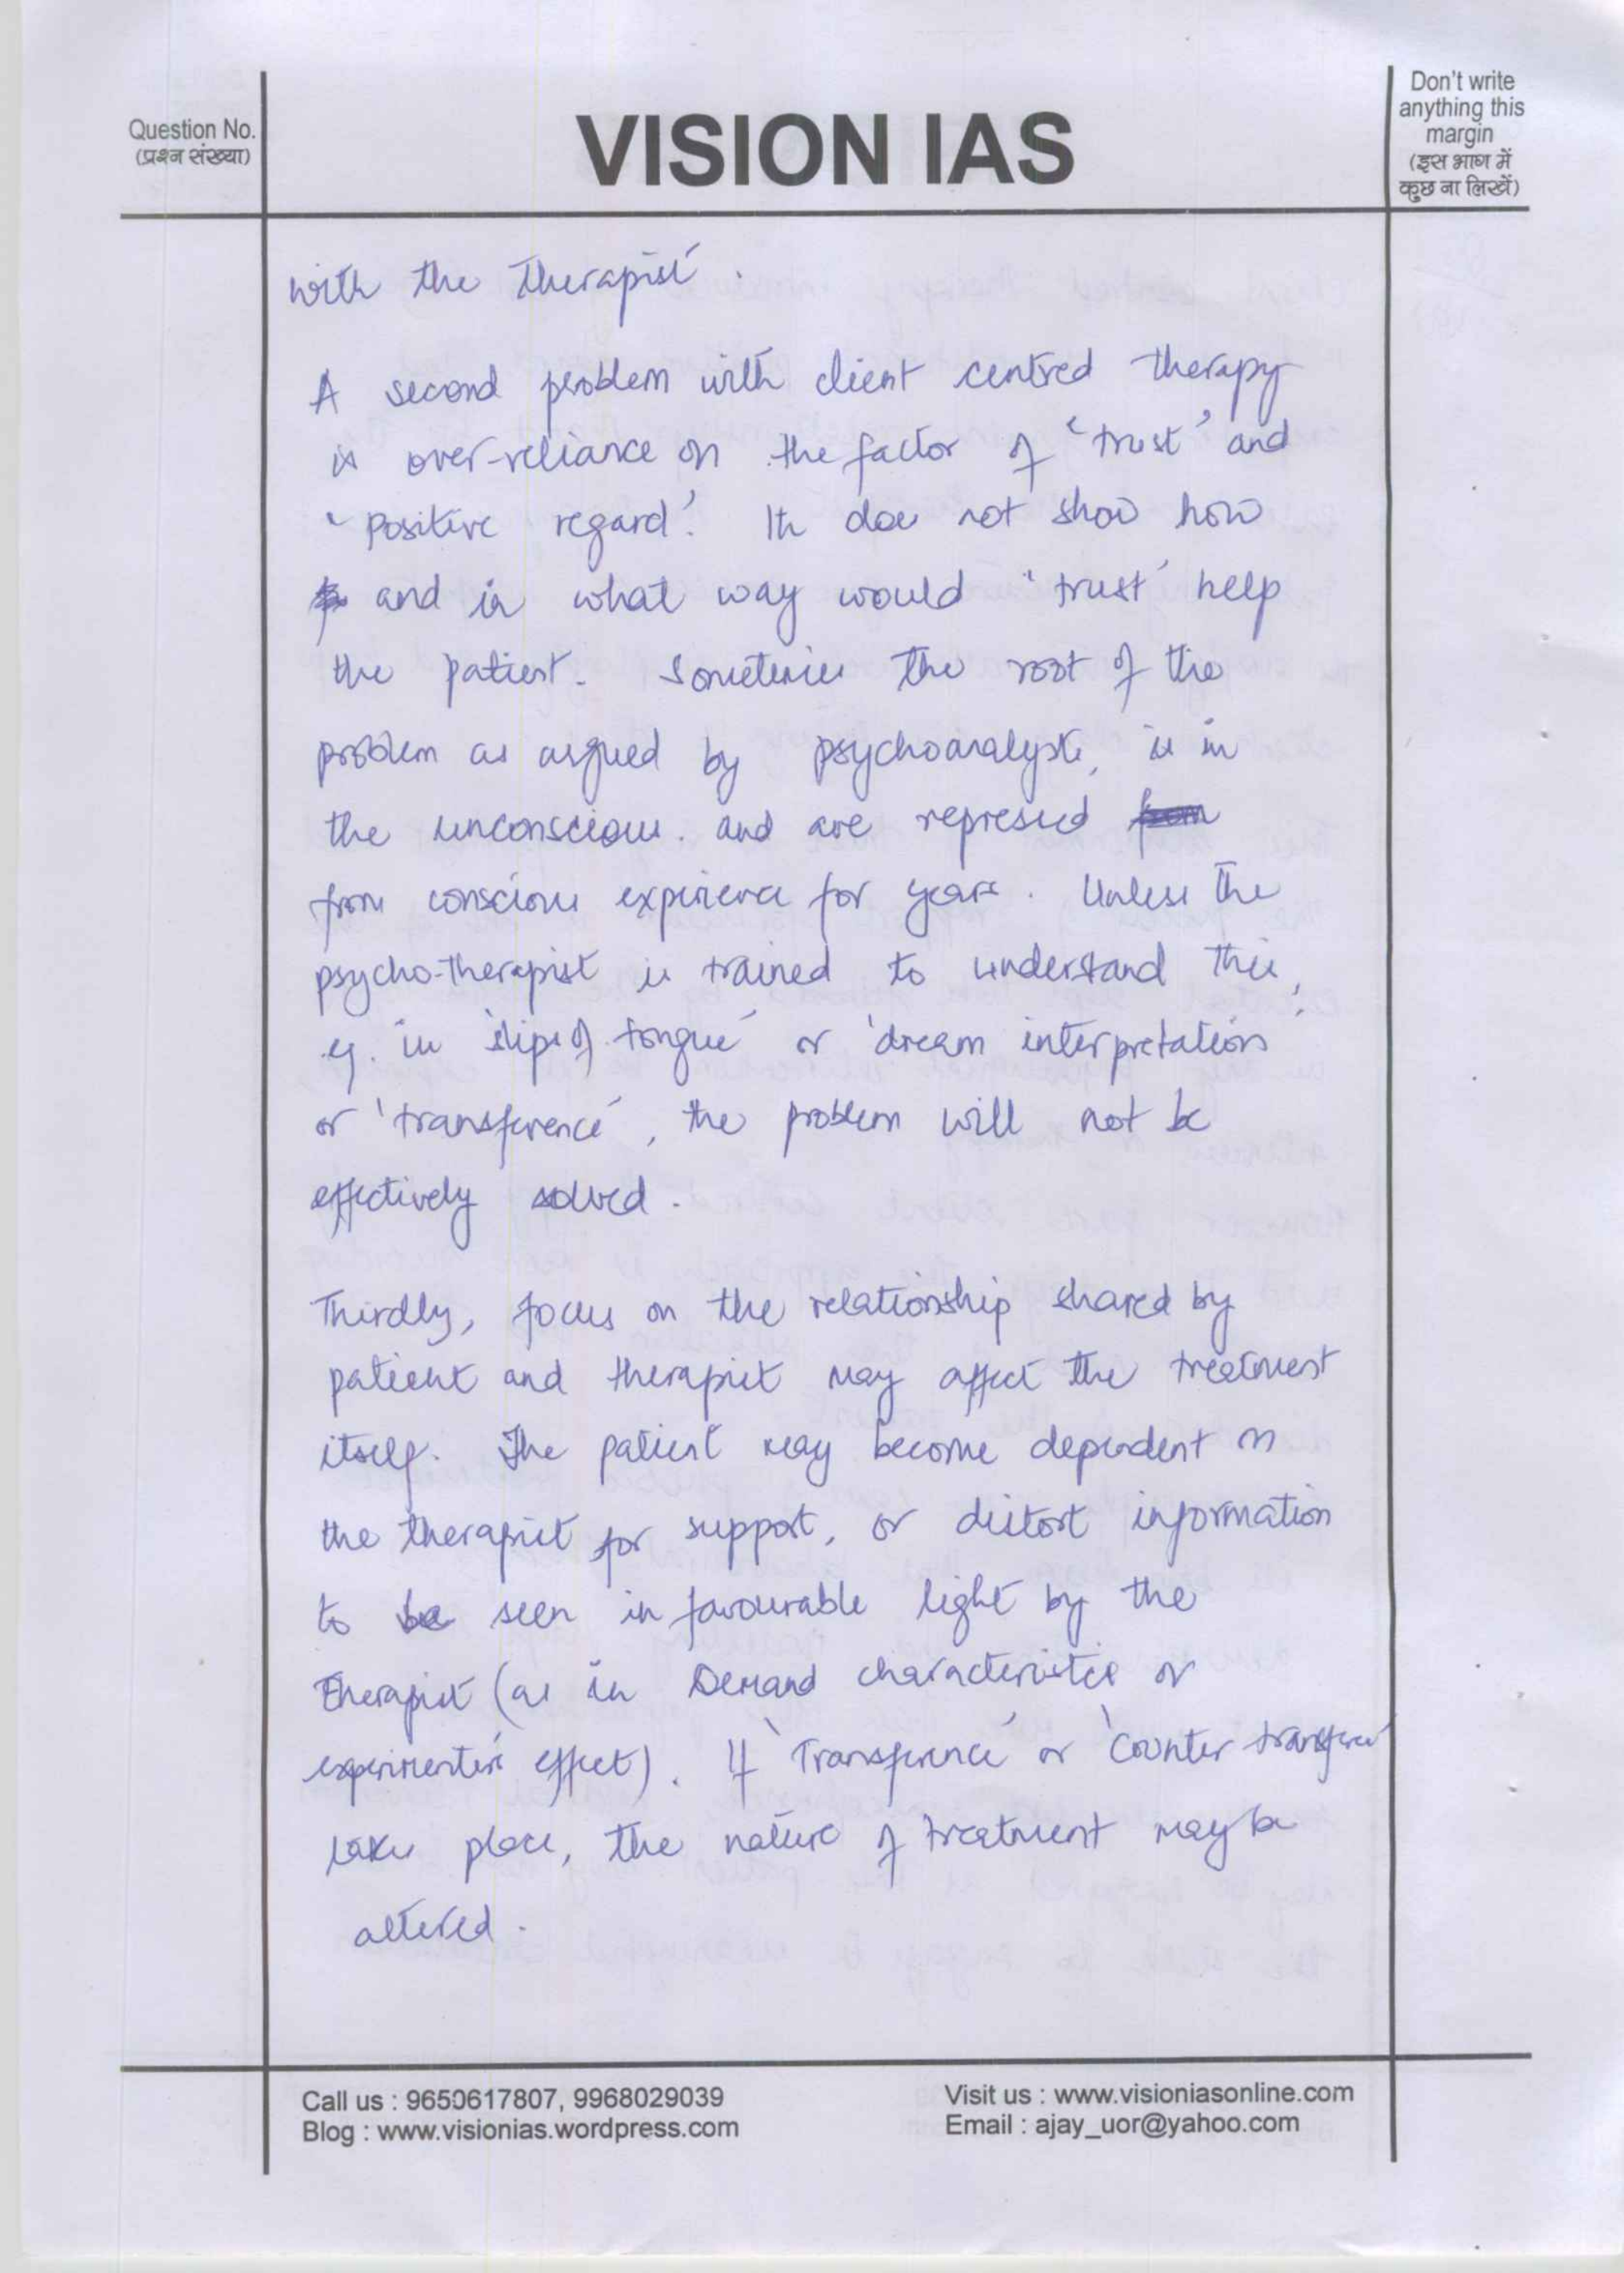 Question No.
(प्रश्न संख्या)
VISION IAS
Don't write
anything this
margin
(इस भाग में
कुछ ना लिखें)
with the therapist.
A second problem with client centred therapy
is over-reliance on the factor of 'trust' and
'positive regard'. It doe not show how
and in what way would 'trust' help
the patient. Sometimes the root of the
problem as argued by psychoanalysts, is in
the unconscious. and are represed
from conscious experience for years. Unless the
psycho-therapist is trained to understand this,
eg. in 'slips of tongue' or 'dream interpretation'
or 'transference', the problem will not be
effectively solved.
Thirdly, focus on the relationship shared by
patient and therapist may affect the treatment
itself. The patient may become dependent on
the therapist for support, or distort information
to be seen in favourable light by the
therapist (as in Demand characteristics or
experimenter's effect). If 'Transference' or 'Counter transfere'
takes place, the nature of treatment may be
altered.
Call us : 9650617807, 9968029039
Blog : www.visionias.wordpress.com
Visit us : www.visioniasonline.com
Email : ajay_uor@yahoo.com